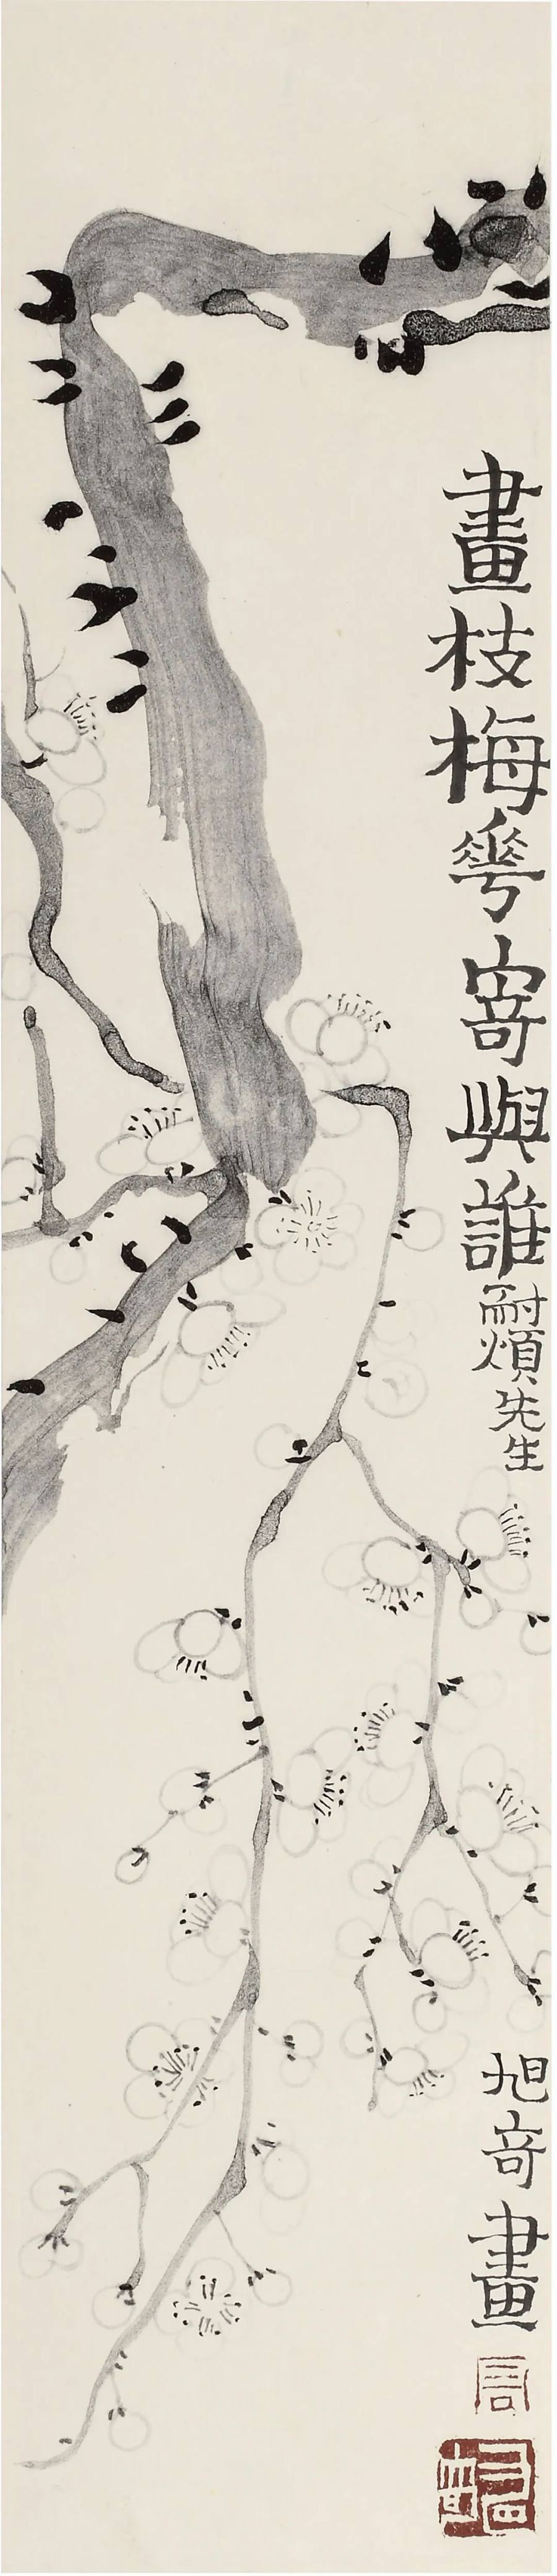 畫枝梅華寄與誰
耐煩先生
旭奇畫
周